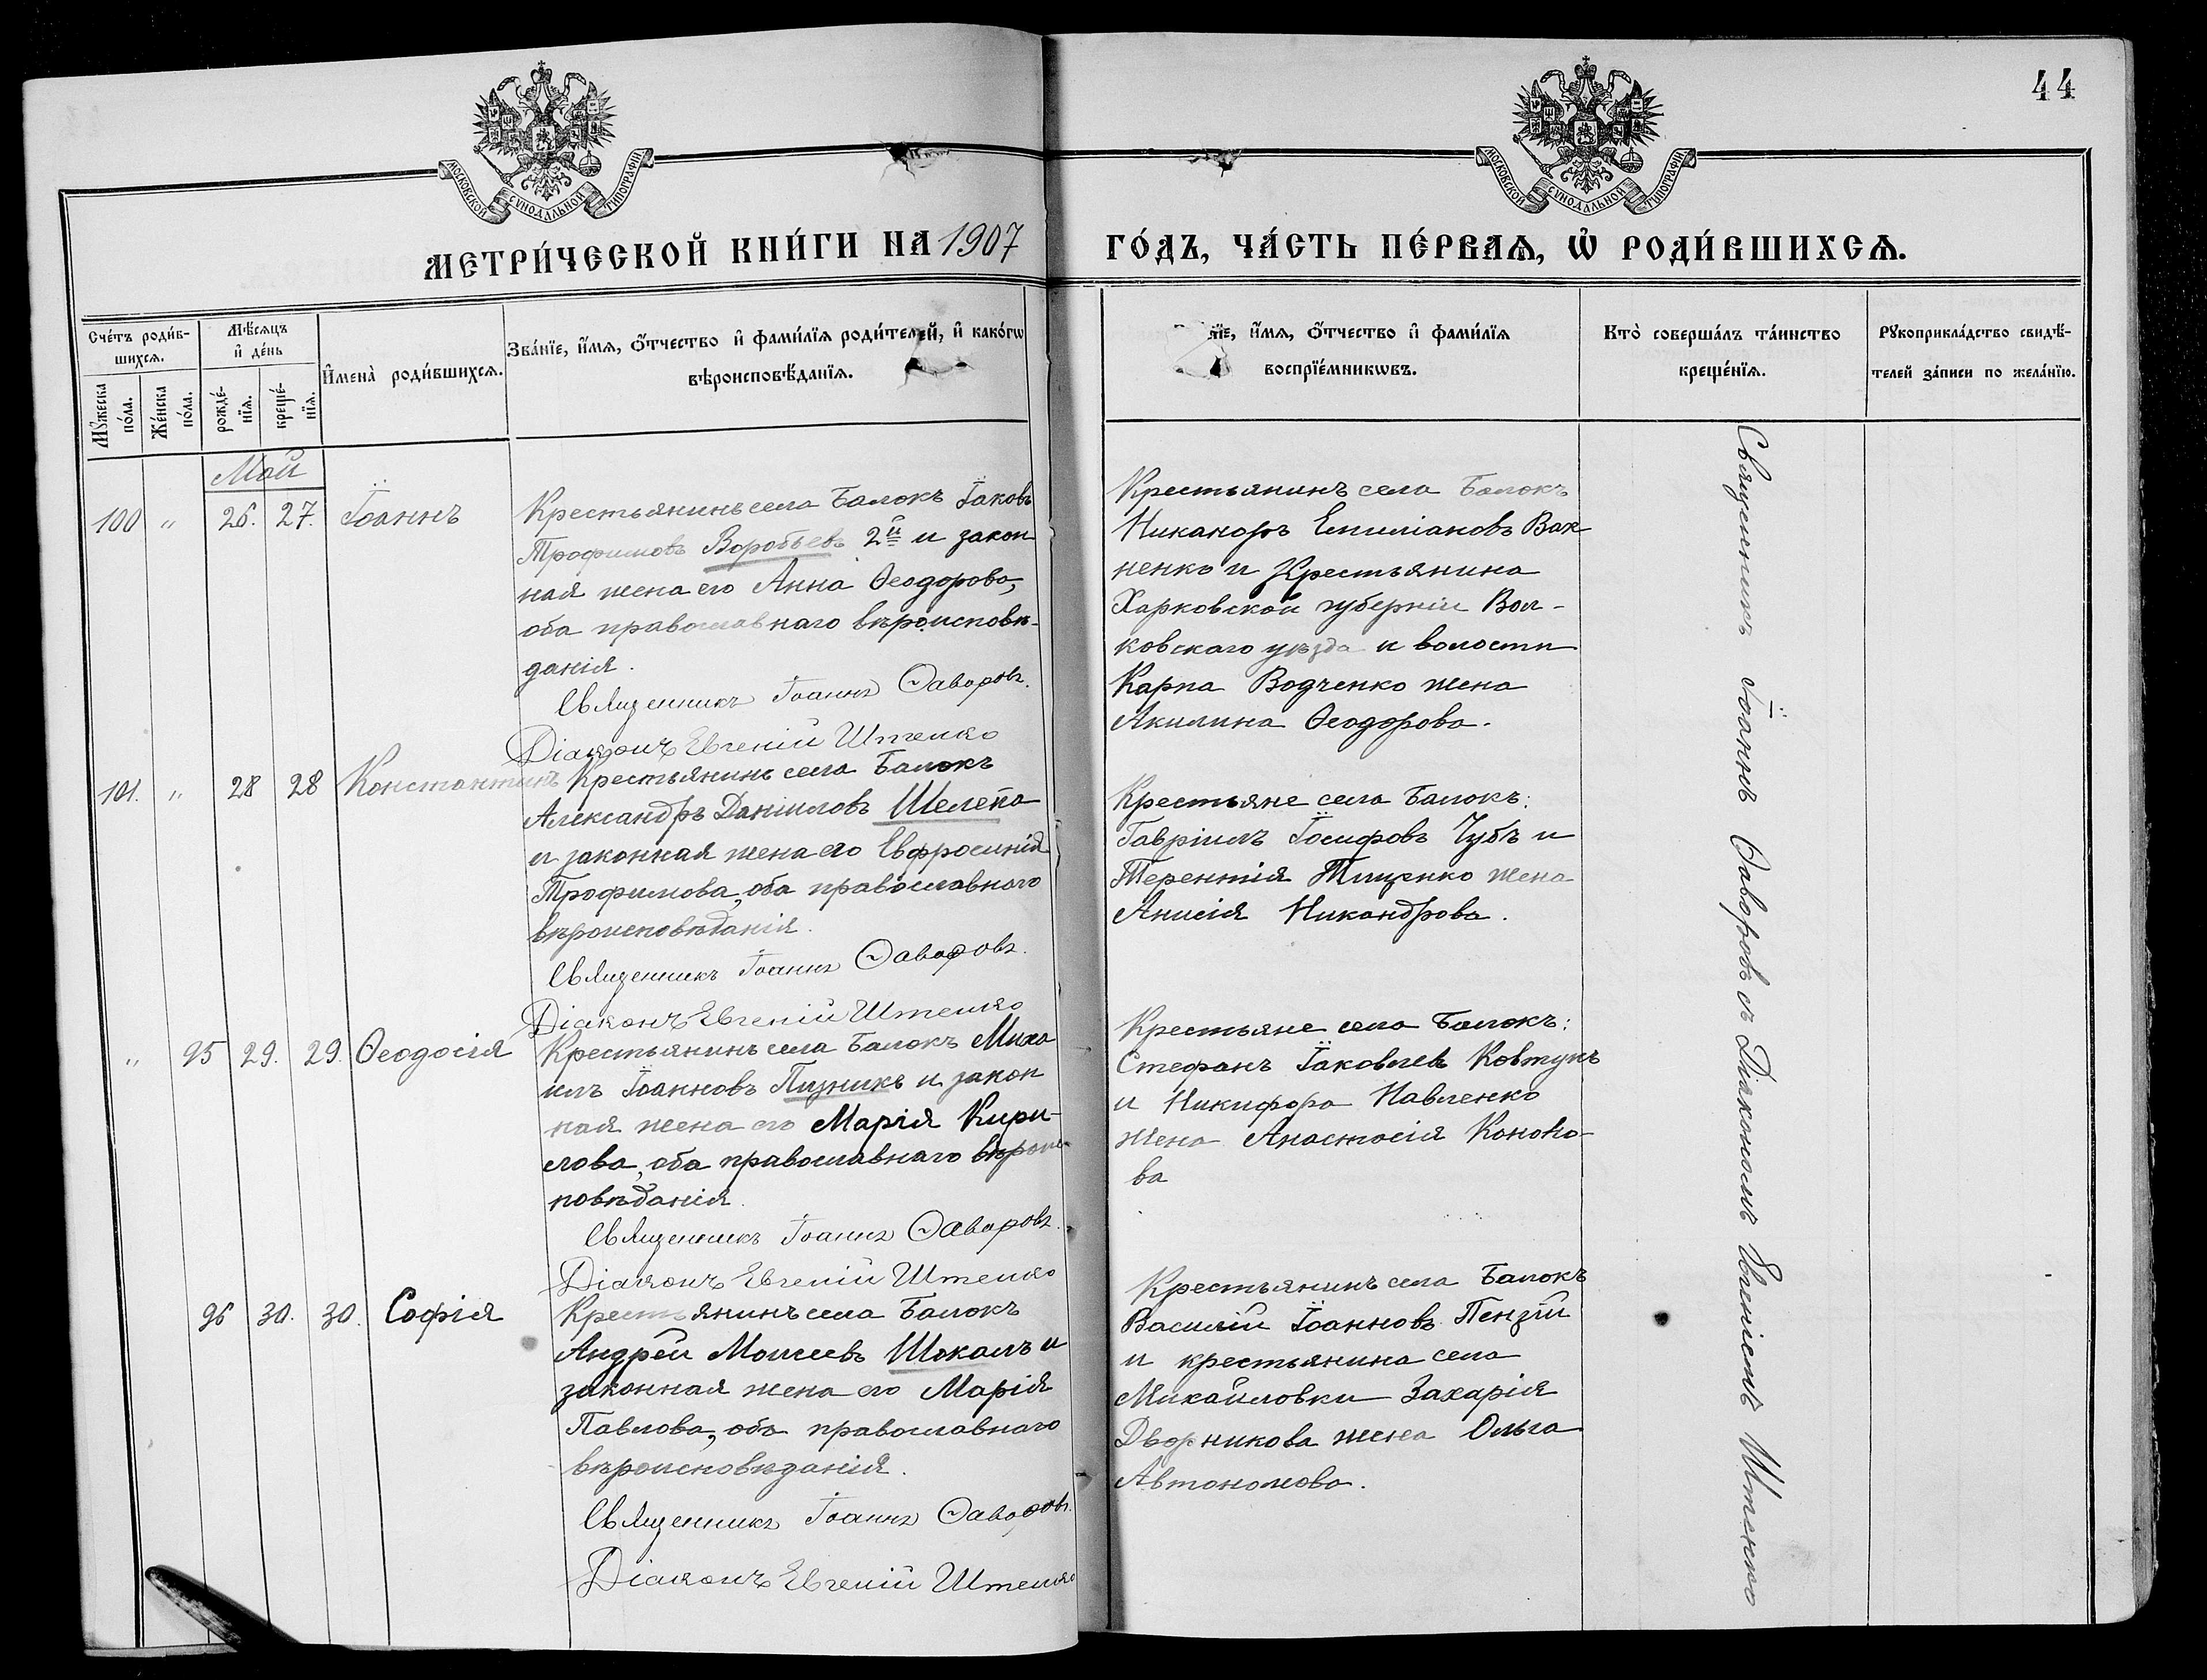 44
МОСКОВСКОЙ СѴНОДАЛЬНОЙ ТИПОГРАФІИ
МОСКОВСКОЙ СѴНОДАЛЬНОЙ ТИПОГРАФІИ
МЕТРИ́ЧЕСКОЙ КНИ́ГИ НА 1907 ГО́ДЪ, ЧА́СТЬ ПЕ́РВАѦ, Ѡ҆ РОДИ́ВШИХСѦ.
Сче́тъ роди́в-
шихсѧ.
Мꙋ́жеска по́ла.
Же́нска по́ла.
Мѣ́сѧцъ
и҆ де́нь
рожде́-
нїѧ.
креще́-
нїѧ.
И҆мена̀ роди́вшихсѧ.
Зва́нїе, и҆́мѧ, ѻ҆́тчество и҆ фами́лїѧ роди́телей, и҆ како́гѡ
вѣроисповѣ́данїѧ.
їе, и҆́мѧ, ѻ҆́тчество и҆ фами́лїѧ
воспрїе́мникѡвъ.
Кто̀ соверша́лъ та́инство
креще́нїѧ.
Рꙋкоприкла́дство свидѣ́-
телей за́писи по жела́нїю.
Май
100 " 26. 27. Іоаннъ
Крестьянинъ села Балокъ Іаковъ
Трофимовъ Воробьевъ 2й и закон
ная жена его Анна Ѳеодорова,
оба православнаго вѣроисповѣ-
данія.
Священникъ Іоаннъ Ѳаворовъ.
Діаконъ Евгеній Штепко
Крестьянинъ села Балокъ
Никаноръ Емиліановъ Вак
ненко и Крестьянина
Харковской губерніи Вол-
ковскаго уѣзда и волости
Карпа Водченко жена
Акилина Ѳеодорова.
101. " 28 28 Константинъ
Крестьянинъ села Балокъ
Александръ Даніиловъ Шелепа
и законная жена его Евфросинія
Трофимова, оба православного
вѣроисповѣданія.
Священникъ Іоаннъ Ѳаворовъ.
Діаконъ Евгеній Штепко
Крестьяне села Балокъ:
Гавріилъ Іосифовъ Чубъ и
Терентія Тищенко жена
Анисія Никандрова.
" 95 29. 29. Ѳеодосія
Крестьянинъ села Балокъ Миха
илъ Іоанновъ Пузникъ и закон
ная жена его Марія Кири-
лова, оба православнаго вѣроис-
повѣданія.
Священникъ Іоаннъ Ѳаворовъ.
Діаконъ Евгеній Штепко
Крестьяне села Балокъ:
Стефанъ Іаковлевъ Ковтунъ
и Никифора Павленко
жена Анастасія Кононо-
ва
96 30. 30. Софія
Крестьянинъ села Балокъ
Андрей Моисеевъ Шокалъ и
законная жена его Марія
Павлова, оба православнаго
вѣроисповѣданія.
Священникъ Іоаннъ Ѳаворовъ.
Діаконъ Евгеній Штепко
Крестьянинъ села Балокъ
Василій Іоанновъ Пензій
и крестьянина села
Михайловки Захарія
Дворникова жена Ольга
Автономова.
Священникъ Іоаннъ Ѳаворовъ съ Діакономъ Евгеніемъ Штепкою